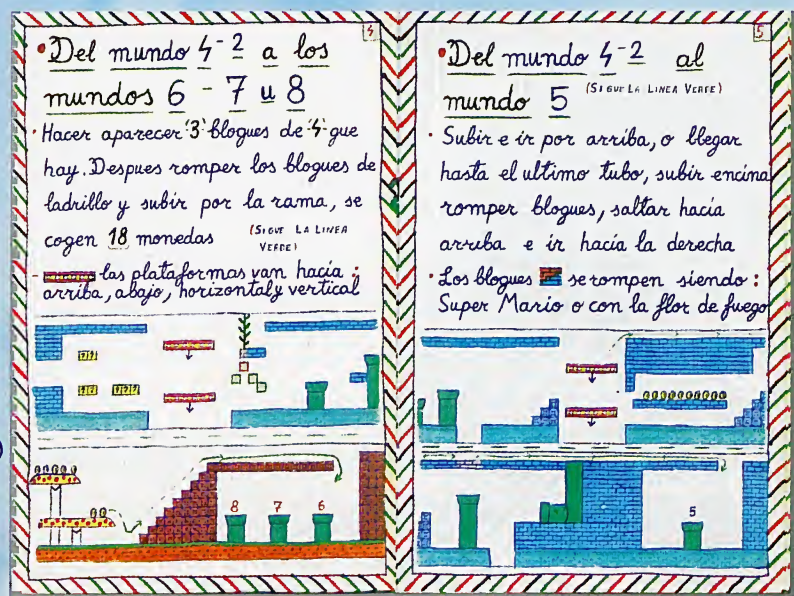 4
•Del mundo 4-2 a los
mundos 6 - 7 u 8
·Hacer aparecer '3' blogues de '4' gue
hay. Despues romper los blogues de
ladrillo y subir por la rama, se
cogen 18 monedas (SIGUE LA LINEA
VERDE)
- las plataformas van hacia :
arriba, abajo, horizontal y vertical
8 7 6
5
•Del mundo 4-2 al
mundo 5 (SIGUE LA LINEA VERDE)
· Subir e ir por arriba, o llegar
hasta el ultimo tubo, subir encima
romper blogues, saltar hacia
arriba e ir hacia la derecha
· Los blogues se rompen siendo :
Super Mario o con la flor de fuego
5